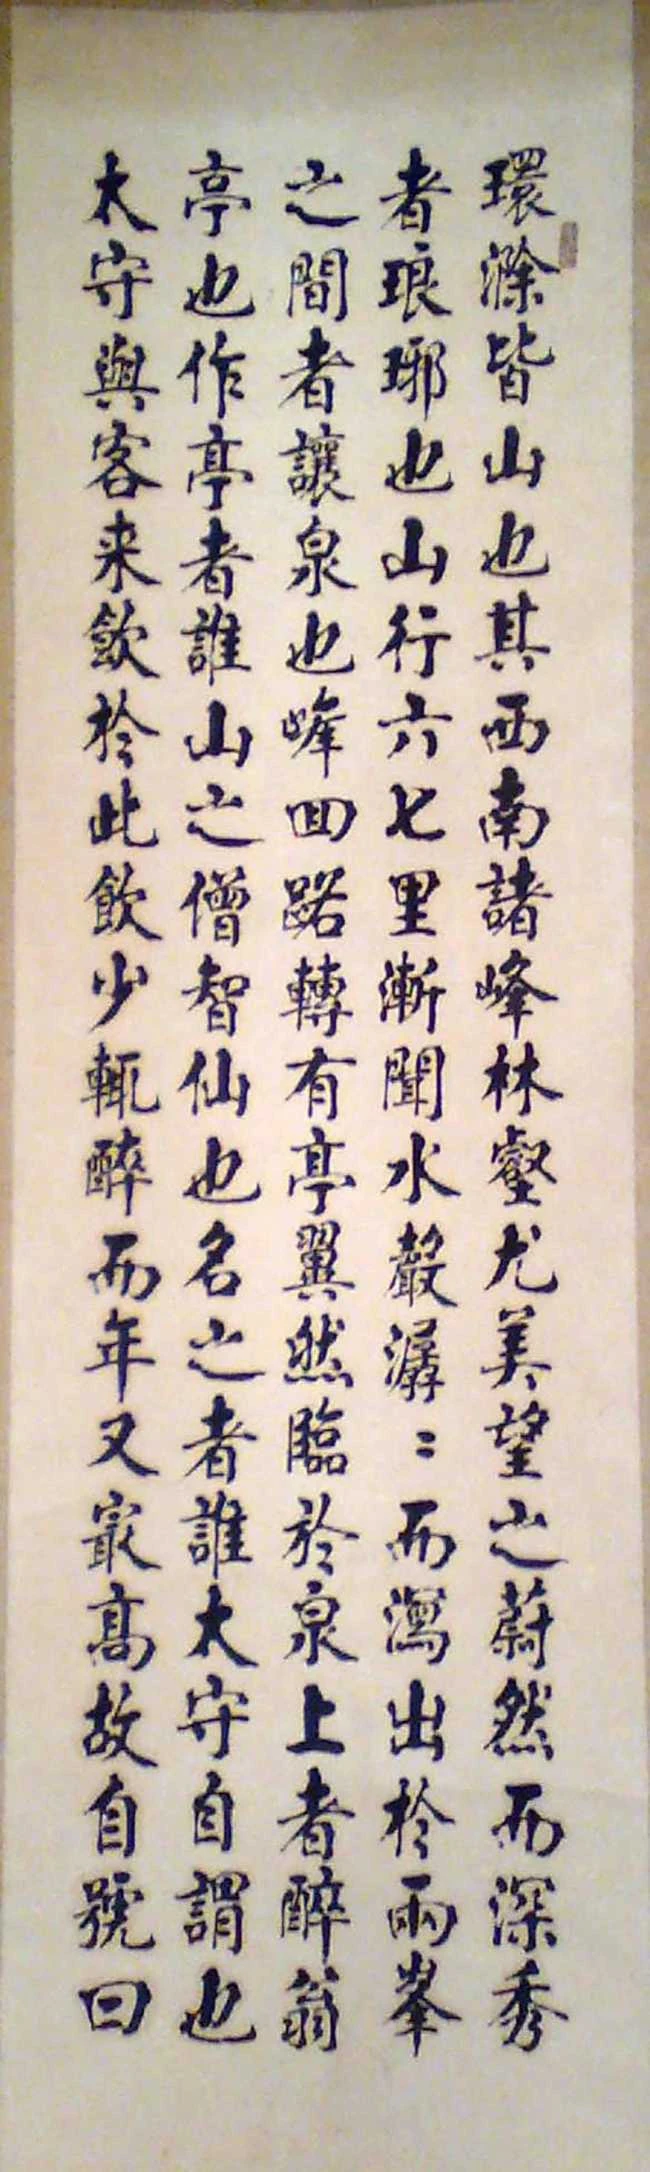 環滁皆山也其西南諸峰林壑尤美望之蔚然而深秀
者琅琊也山行六七里漸聞水聲潺〻而瀉出於兩峯
之間者讓泉也峰回路轉有亭翼然臨於泉上者醉翁
亭也作亭者誰山之僧智仙也名之者誰太守自謂也
太守與客来飲於此飲少輒醉而年又冣高故自號曰